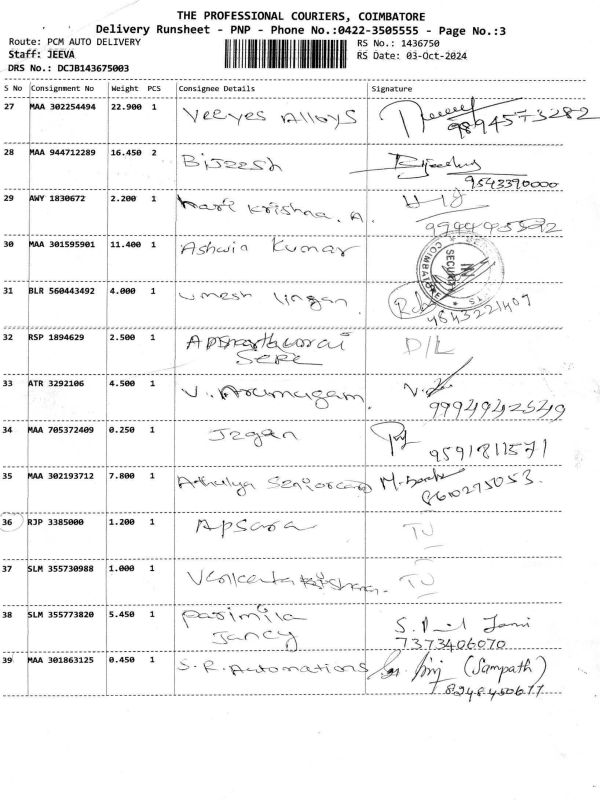 THE PROFESSIONAL COURIERS, COIMBATORE
Delivery Runsheet - PNP - Phone No.:0422-3505555 - Page No.:3
Route: PCM AUTO DELIVERY
RS No.: 1436750
Staff: JEEVA
RS Date: 03-Oct-2024
DRS No.: DCJB143675003
S No Consignment No Weight PCS Consignee Details Signature
27 MAA 302254494 22.900 1 Veeyes Alloys
9894573282
28 MAA 944712289 16.450 2 Bijeesh
9543390000
29 AWY 1830672 2.200 1 Hari Krishna. A.
30 MAA 301595901 11.400 1 Ashwin Kumar
COIMBATORE
SECURITY
31 BLR 560443492 4.000 1 Umesh lingan
9843221407
32 RSP 1894629 2.500 1 D/L
33 ATR 3292106 4.500 1 V. Arumugam.
9994942549
34 MAA 705372409 0.250 1 Jegan
9591811571
35 MAA 302193712 7.800 1 Athulya Seniorcare
8610275053.
36 RJP 3385000 1.200 1 Apsara TU
37 SLM 355730988 1.000 1 Venkata Krishnan. TU
38 SLM 355773820 5.450 1 Parimila
Jancy
7373406070
39 MAA 301863125 0.450 1 S.R. Automations (Sampath)
8248450677